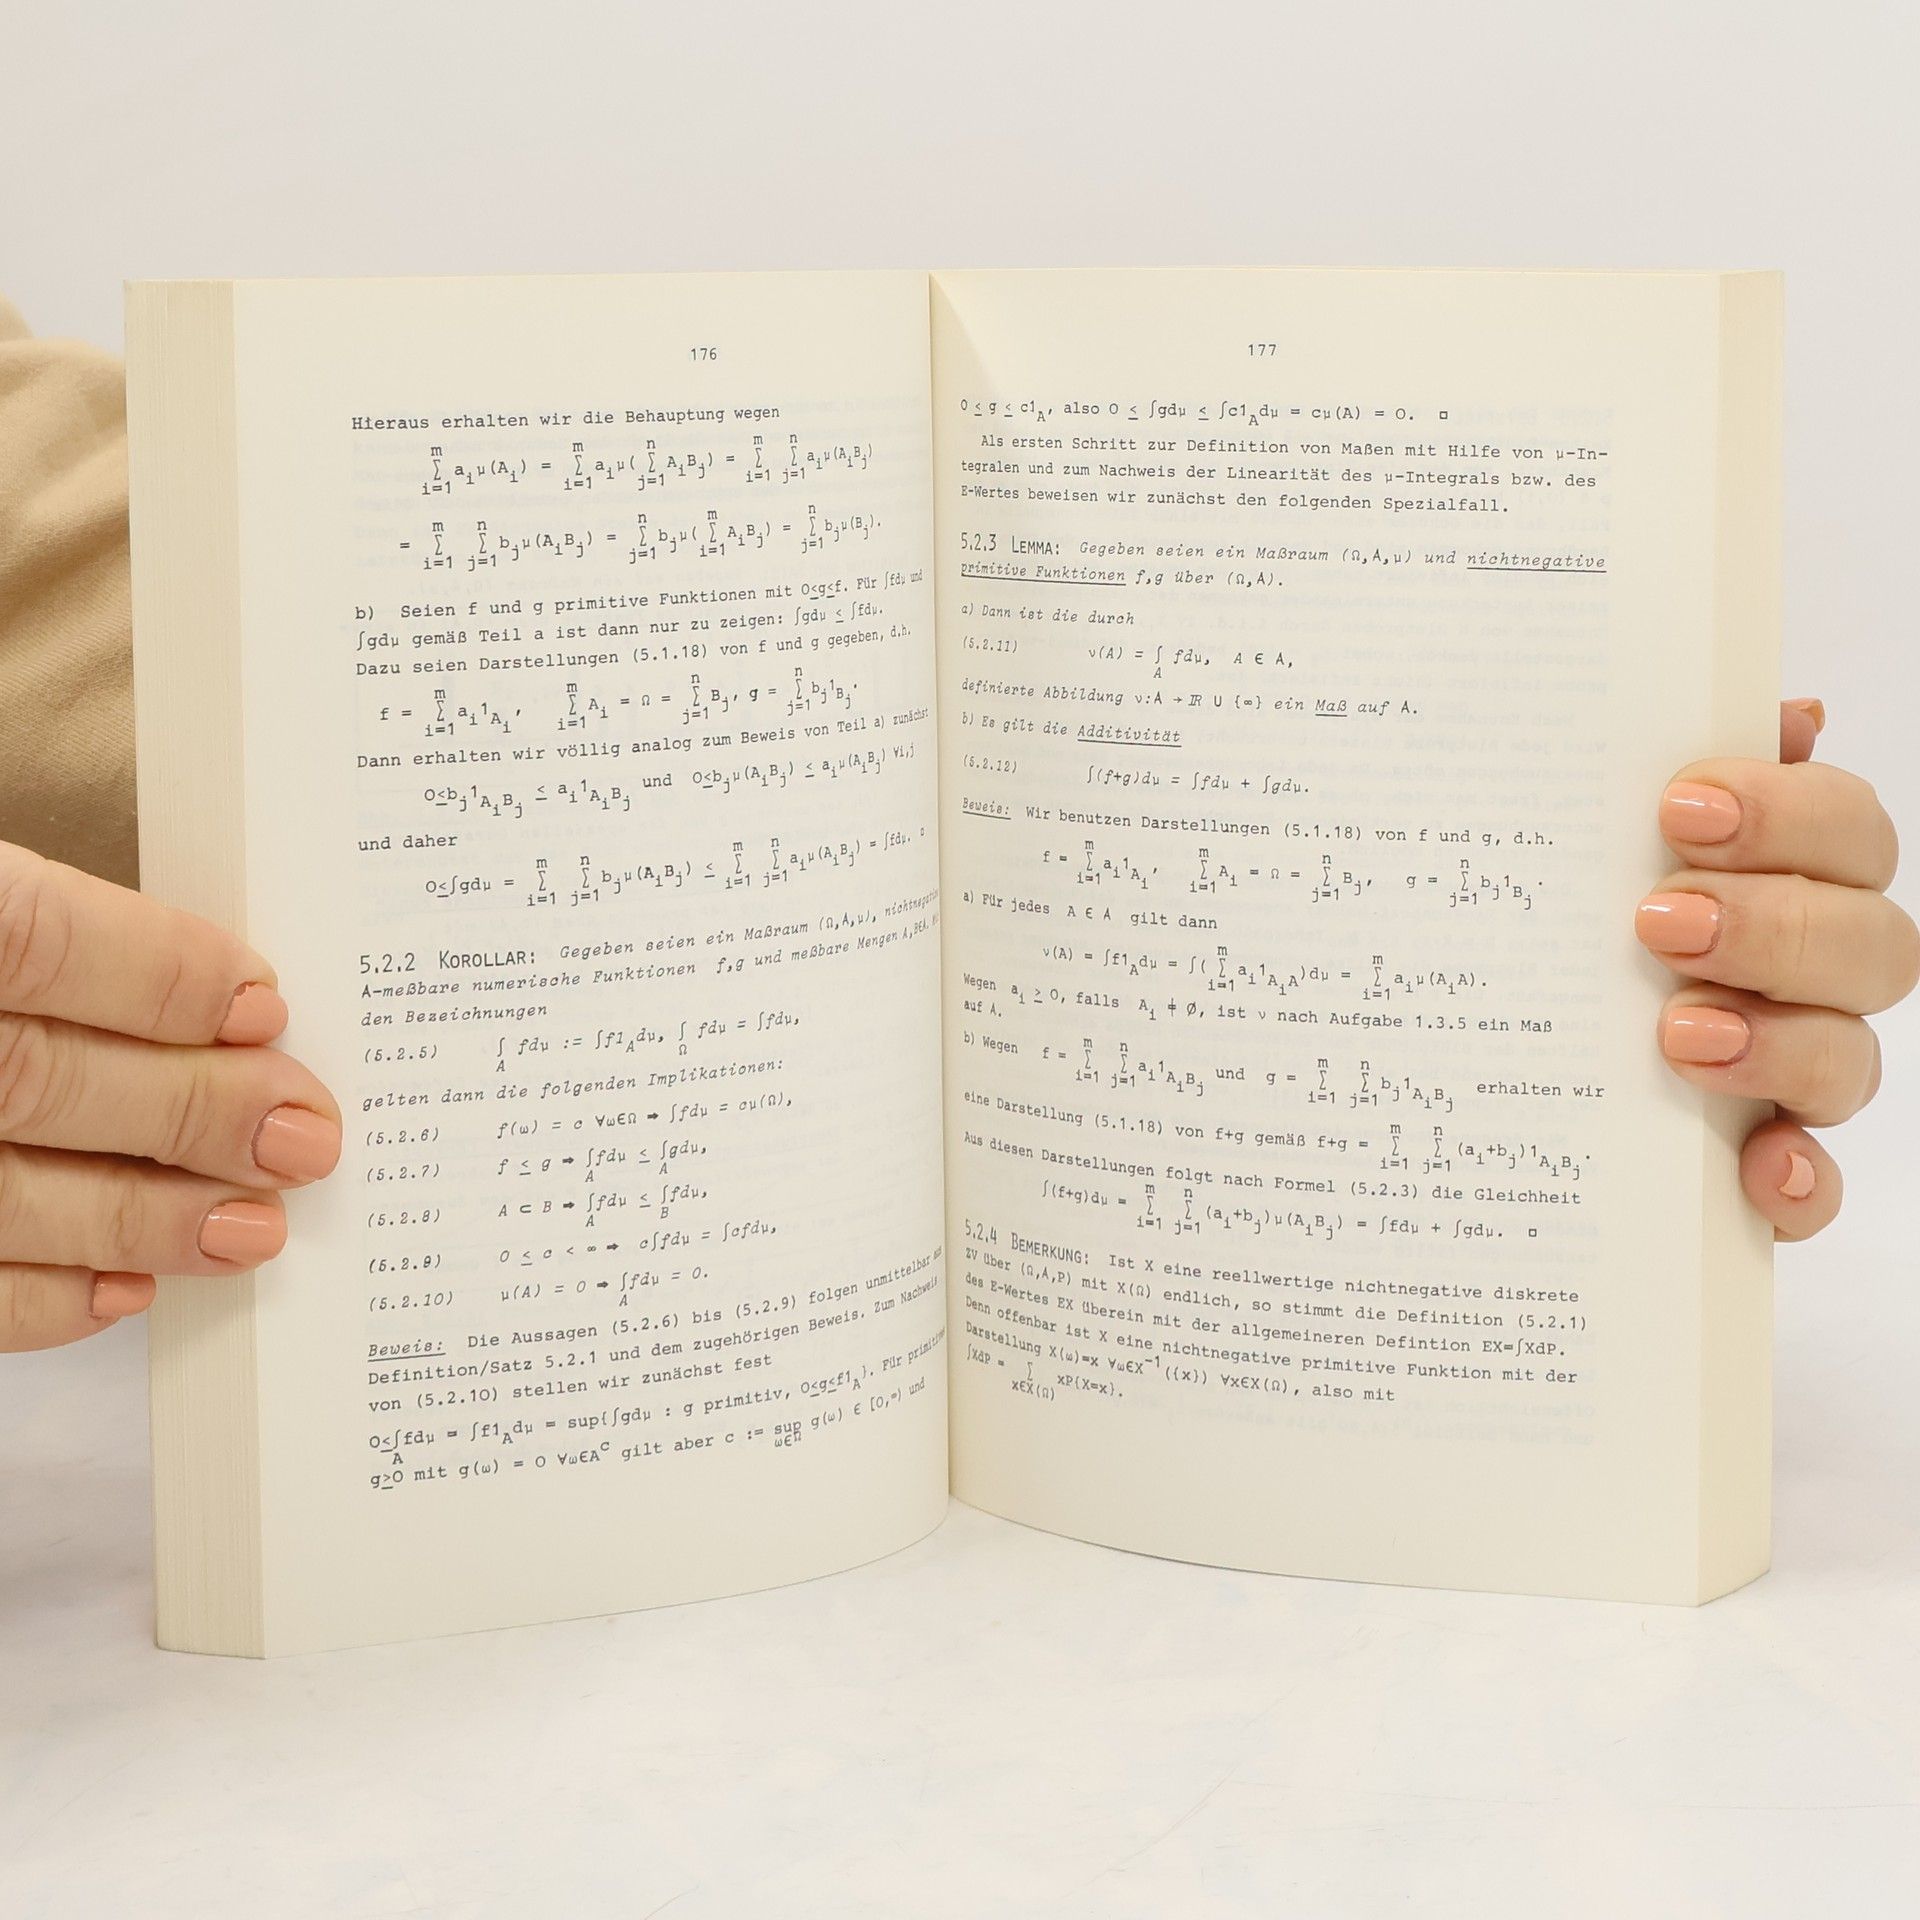 176
Hieraus erhalten wir die Behauptung wegen
m∑i=1 a_i μ(A_i) = m∑i=1 a_i μ( n∑j=1 A_iB_j) = m∑i=1 n∑j=1 a_i μ(A_iB_j)
= m∑i=1 n∑j=1 b_j μ(A_iB_j) = n∑j=1 b_j μ( m∑i=1 A_iB_j) = n∑j=1 b_j μ(B_j).
b) Seien f und g primitive Funktionen mit 0≤g≤f. Für ∫fdμ und
∫gdμ gemäß Teil a ist dann nur zu zeigen: ∫gdμ ≤ ∫fdμ.
Dazu seien Darstellungen (5.1.18) von f und g gegeben, d.h.
f = m∑i=1 a_i 1_{A_i}, m∑i=1 A_i = Ω = n∑j=1 B_j, g = n∑j=1 b_j 1_{B_j}.
Dann erhalten wir völlig analog zum Beweis von Teil a) zunächst
0≤b_j 1_{A_iB_j} ≤ a_i 1_{A_iB_j} und 0≤b_j μ(A_iB_j) ≤ a_i μ(A_iB_j) ∀i,j
und daher
0≤∫gdμ = m∑i=1 n∑j=1 b_j μ(A_iB_j) ≤ m∑i=1 n∑j=1 a_i μ(A_iB_j) = ∫fdμ. □
5.2.2 KOROLLAR: Gegeben seien ein Maßraum (Ω,A,μ), nichtnegative
A-meßbare numerische Funktionen f,g und meßbare Mengen A,B∈A.
den Bezeichnungen
(5.2.5) ∫_A fdμ := ∫f1_A dμ, ∫_Ω fdμ = ∫fdμ,
gelten dann die folgenden Implikationen:
(5.2.6) f(ω) = c ∀ω∈Ω ⇒ ∫fdμ = cμ(Ω),
(5.2.7) f ≤ g ⇒ ∫_A fdμ ≤ ∫_A gdμ,
(5.2.8) A ⊂ B ⇒ ∫_A fdμ ≤ ∫_B fdμ,
(5.2.9) 0 ≤ c < ∞ ⇒ c∫fdμ = ∫cfdμ,
(5.2.10) μ(A) = 0 ⇒ ∫_A fdμ = 0.
Beweis: Die Aussagen (5.2.6) bis (5.2.9) folgen unmittelbar aus
Definition/Satz 5.2.1 und dem zugehörigen Beweis. Zum Nachweis
von (5.2.10) stellen wir zunächst fest
0≤∫_A fdμ = ∫f1_A dμ = sup{∫gdμ : g primitiv, 0≤g≤f1_A}. Für primitives
g≥0 mit g(ω) = 0 ∀ω∈A^C gilt aber c := sup_{ω∈Ω} g(ω) ∈ [0,∞) und
177
0 ≤ g ≤ c1_A, also 0 ≤ ∫gdμ ≤ ∫c1_A dμ = cμ(A) = 0. □
Als ersten Schritt zur Definition von Maßen mit Hilfe von μ-In-
tegralen und zum Nachweis der Linearität des μ-Integrals bzw. des
E-Wertes beweisen wir zunächst den folgenden Spezialfall.
5.2.3 LEMMA: Gegeben seien ein Maßraum (Ω,A,μ) und nichtnegative
primitive Funktionen f,g über (Ω,A).
a) Dann ist die durch
(5.2.11) ν(A) = ∫_A fdμ, A ∈ A,
definierte Abbildung ν:A → ℝ ∪ {∞} ein Maß auf A.
b) Es gilt die Additivität
(5.2.12) ∫(f+g)dμ = ∫fdμ + ∫gdμ.
Beweis: Wir benutzen Darstellungen (5.1.18) von f und g, d.h.
f = m∑i=1 a_i 1_{A_i}, m∑i=1 A_i = Ω = n∑j=1 B_j, g = n∑j=1 b_j 1_{B_j}.
a) Für jedes A ∈ A gilt dann
ν(A) = ∫f1_A dμ = ∫( m∑i=1 a_i 1_{A_iA})dμ = m∑i=1 a_i μ(A_iA).
Wegen a_i ≥ 0, falls A_i ≠ Ø, ist ν nach Aufgabe 1.3.5 ein Maß
auf A.
b) Wegen f = m∑i=1 n∑j=1 a_i 1_{A_iB_j} und g = m∑i=1 n∑j=1 b_j 1_{A_iB_j} erhalten wir
eine Darstellung (5.1.18) von f+g gemäß f+g = m∑i=1 n∑j=1 (a_i+b_j)1_{A_iB_j}.
Aus diesen Darstellungen folgt nach Formel (5.2.3) die Gleichheit
∫(f+g)dμ = m∑i=1 n∑j=1 (a_i+b_j)μ(A_iB_j) = ∫fdμ + ∫gdμ. □
5.2.4 BEMERKUNG: Ist X eine reellwertige nichtnegative diskrete
ZV über (Ω,A,P) mit X(Ω) endlich, so stimmt die Definition (5.2.1)
des E-Wertes EX überein mit der allgemeineren Defintion EX=∫XdP.
Denn offenbar ist X eine nichtnegative primitive Funktion mit der
Darstellung X(ω)=x ∀ω∈X^{-1}({x}) ∀x∈X(Ω), also mit
∫XdP = ∑_{x∈X(Ω)} xP{X=x}.